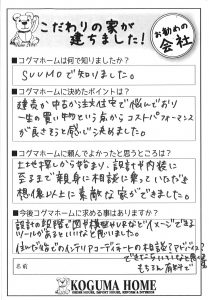 こだわりの家が
建ちました!
お勧めの
会社
■コグマホームは何で知りましたか?
SUUMOで知りました。
■コグマホームに決めたポイントは?
建売か中古か注文住宅で悩んでおり
一生の買い物という点からコストパフォーマンス
が良さそうと感じ決めました。
■コグマホームに頼んでよかったと思うところは?
土地探しから始まり、設計や内装に
至るまで親身に相談に乗っていただき
想像以上に素敵な家ができました。
■今後コグマホームに求める事はありますか?
設計の段階で図や模型やVRなどでイメージできる
ツールがあるといいなと思いました。
住んだ後でのインテリアコーディネートの相談
できたらいいなと
もちろん有料で
名前
KOGUMA HOME